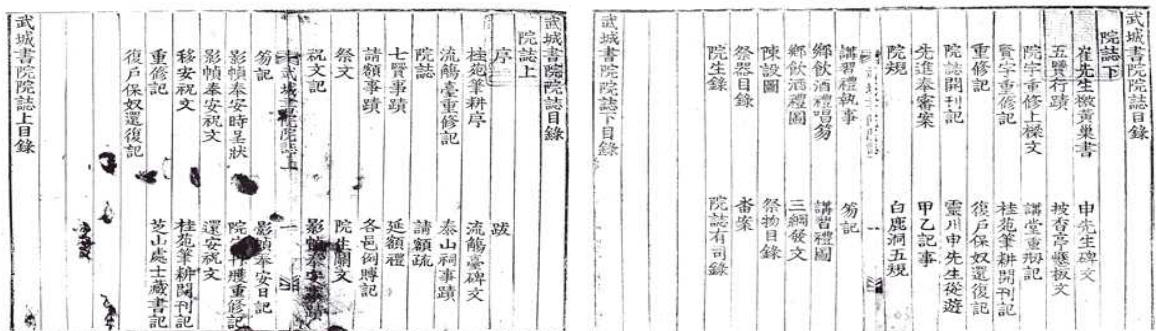 武城書院院誌目錄
院誌上
序 跋
桂苑筆耕序 流觴臺碑文
流觴臺重修記 泰山祠事蹟
院誌 請額疏
七賢事蹟 延額禮
請額事蹟 各邑例賻記
祭文 院生關文
祝文記 影幀奉安事蹟
武城書院院誌上 一
笏記 影幀奉安日記
影幀奉安時呈狀 院 重修記
影幀奉安祝文 還安祝文
移安祝文 桂苑筆耕開刊記
重修記 芝山處士藏書記
復戶保奴還復記
武城書院院誌上目錄
武城書院院誌目錄
院誌下
崔先生檄黃巢書 申先生碑文
五賢行蹟 披香亭懸板文
院宇重修上樑文 講堂重刱記
賢宇重修記 桂苑筆耕開刊記
重修記 復戶保奴還復記
院誌開刊記 靈川申先生從遊
先進奉審案 甲乙記事
院規 白鹿洞五規
一
講習禮執事 笏記
鄉飲酒禮唱笏 講習禮圖
鄉飲酒禮圖 三綱發文
陳設圖 祭物目錄
祭器目錄 畨案
院生錄 院誌有司錄
武城書院院誌下目錄